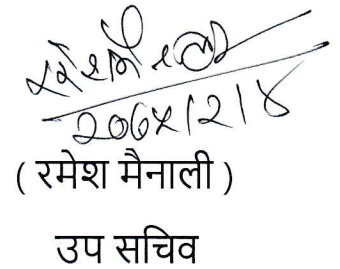 २०७५।२।४
( रमेश मैनाली )
उप सचिव